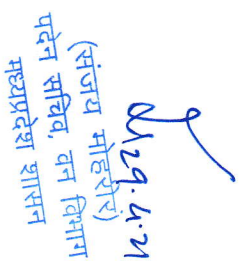 29.4.21
(संजय मोहर्रिर)
पदेन सचिव, वन विभाग
मध्यप्रदेश शासन